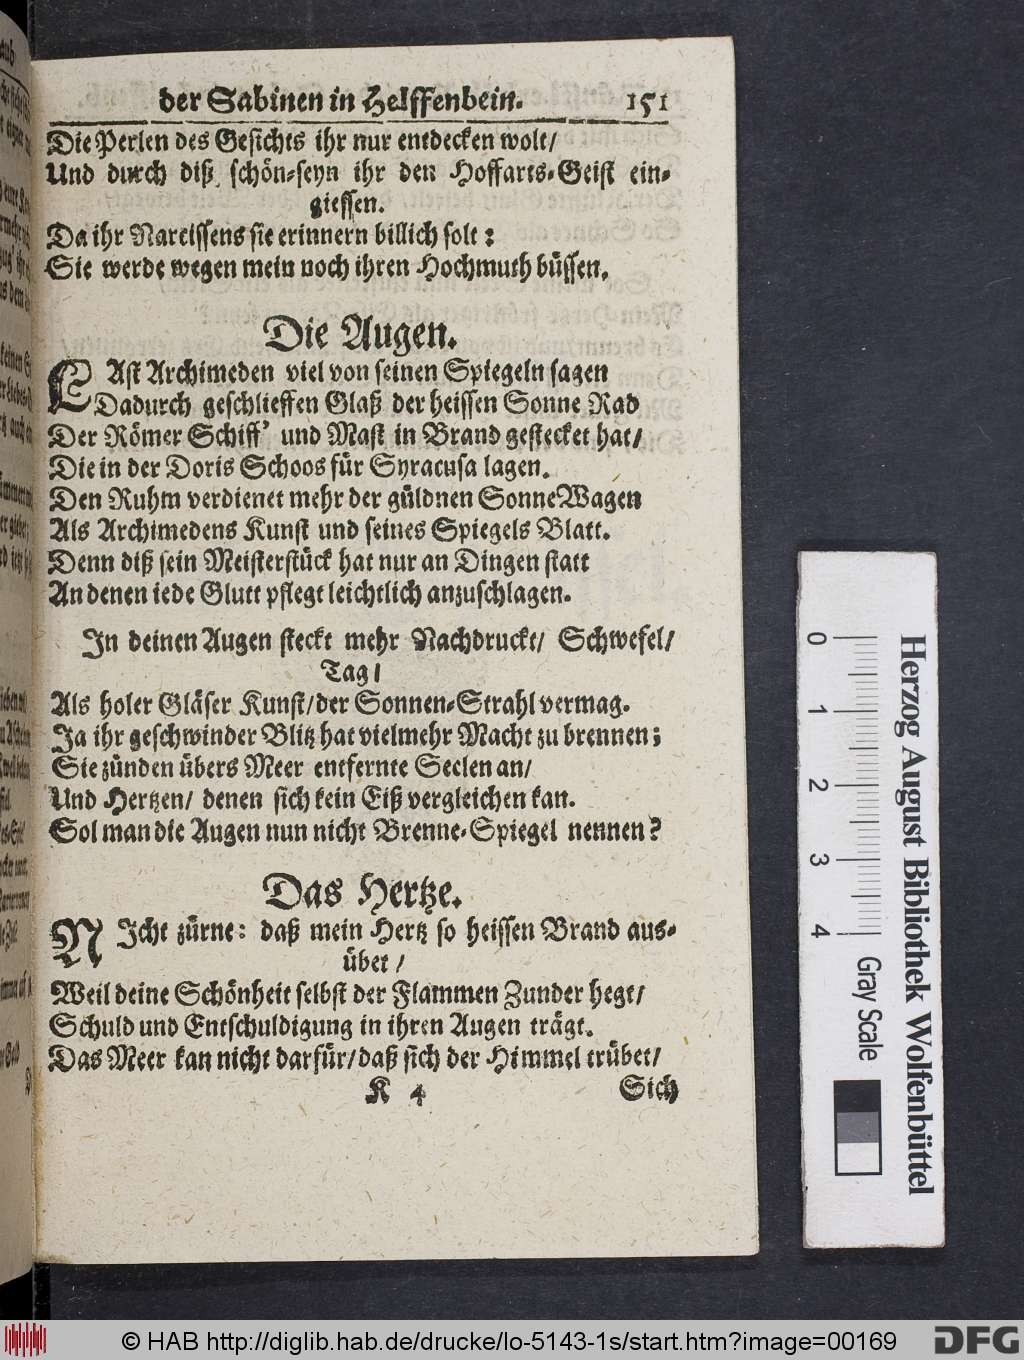 der Sabinen in Helffenbein. 151
Die Perlen des Gesichts ihr nur entdecken wolt/
Und durch diß schön-seyn ihr den Hoffarts-Geist ein-
giessen.
Da ihr Narcissens sie erinnern billich solt:
Sie werde wegen mein noch ihren Hochmuth büssen.
Die Augen.
LAst Archimeden viel von seinen Spiegeln sagen
Dadurch geschlieffen Glaß der heissen Sonne Rad
Der Römer Schiff' und Mast in Brand gestecket hat/
Die in der Doris Schoos für Syracusa lagen.
Den Ruhm verdienet mehr der güldnen Sonne Wagen
Als Archimedens Kunst und seines Spiegels Blatt.
Denn diß sein Meisterstück hat nur an Dingen statt
An denen iede Glutt pflegt leichtlich anzuschlagen.
In deinen Augen steckt mehr Nachdruckt/ Schwefel/
Tag/
Als holer Gläser Kunst/ der Sonnen-Strahl vermag.
Ja ihr geschwinder Blitz hat vielmehr Macht zu brennen;
Sie zünden übers Meer entfernte Seelen an/
Und Hertzen/ denen sich kein Eiß vergleichen kan.
Sol man die Augen nun nicht Brenne-Spiegel nennen?
Das Hertze.
NIcht zürne: daß mein Hertz so heissen Brand aus-
übet/
Weil deine Schönheit selbst der Flammen Zunder hegt/
Schuld und Entschuldigung in ihren Augen trägt.
Das Meer kan nicht darfür/ daß sich der Himmel trübet/
K 4 Sich
0 1 2 3 4
Herzog August Bibliothek Wolfenbüttel
Gray Scale
© HAB http://diglib.hab.de/drucke/lo-5143-1s/start.htm?image=00169
DFG